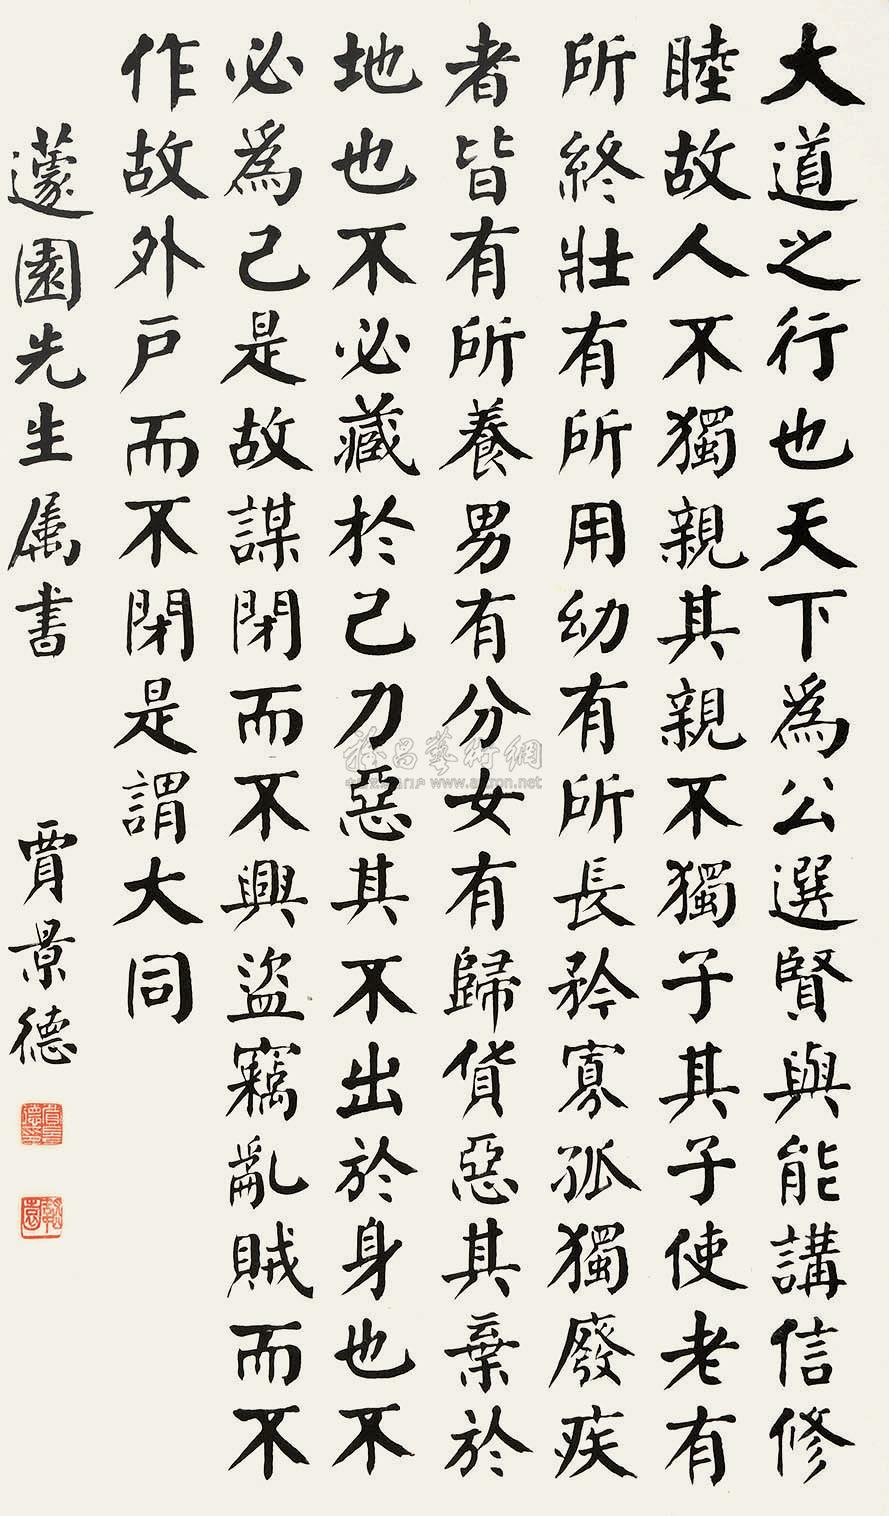 大道之行也天下為公選賢與能講信修
睦故人不獨親其親不獨子其子使老有
所終壯有所用幼有所長矜寡孤獨廢疾
者皆有所養男有分女有歸貨惡其棄於
地也不必藏於己力惡其不出於身也不
必為己是故謀閉而不興盜竊亂賊而不
作故外戶而不閉是謂大同
蘧園先生属書
賈景德
雅昌藝術網
www.artron.net